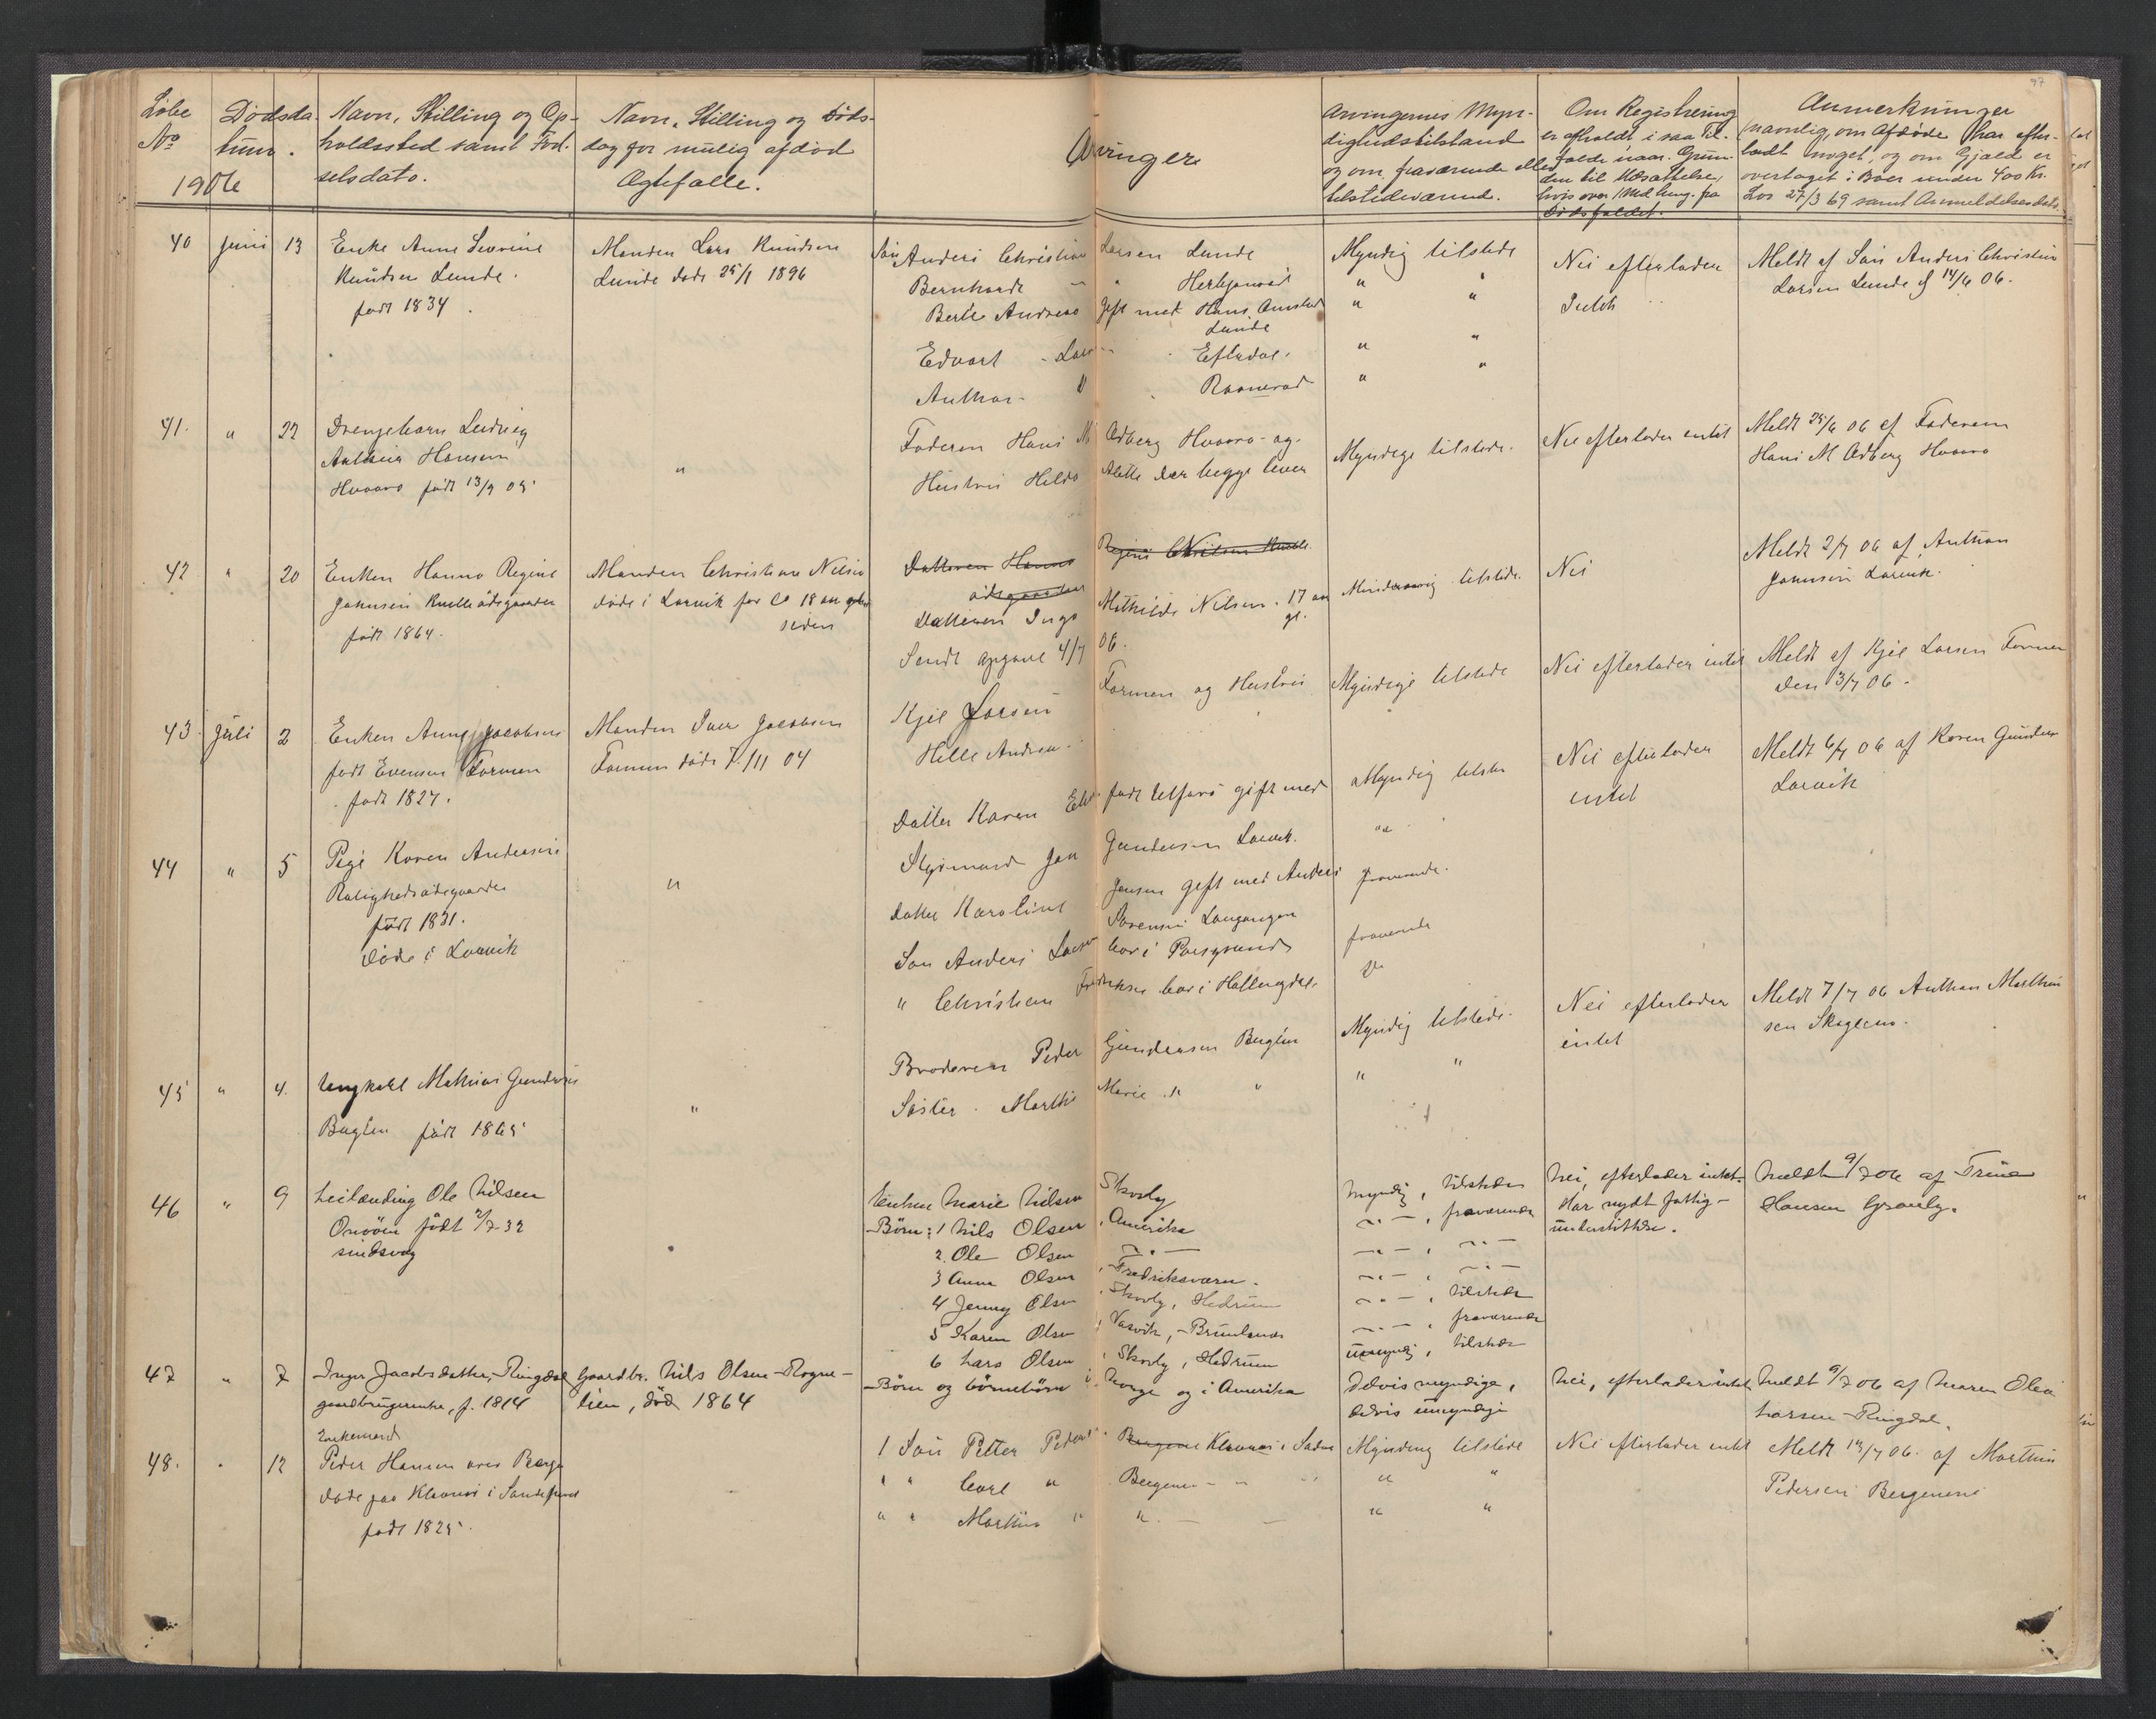 97
Løbe No 1906
Dødsdatum.
Navn, Stilling og Opholdssted samt Fødselsdato.
Navn, Stilling og Dødsdag for mulig afdød Ægtefælle.
Arvinger
Arvingernes Myndighedstilstand og om fraværende eller tilstedeværende.
Om Registrering er afholdt i saa Tilfælde naar. Grunden til Udsættelse, hvis over 1 Md heng. fra Dødsfaldet.
Anmerkninger navnlig om Afdøde har efterladt noget, og om Gjæld er overtaget i Boer under 400 Kr. Lov 27/3 69 samt Anmeldelsesdato.
40 Juni 13
Enke Anne Severine
Knudsen Lunde.
født 1834.
Manden Lars Knudsen
Lunde døde 25/1 1896
Søn Anders Christian Larsen Lunde
Bernhardt - "
Berte Andrea gift med Hans
Lunde
Edvart - Lars - Eftedal.
Anthon - "
Myndig tilstede
" "
" "
" "
" "
Nei efterlader
Intet
Meldt af Søn Anders Christian
Larsen Lunde d 14/6 06.
41. " 22
Drengebarn Ludvig
Hansen
Hvaara født 13/9 05
"
Faderen Hans M Ødberg Hvaara og
Hustru Alette der begge lever
Myndige tilstede.
Nei efterlader intet
Meldt 25/6 06 af Faderen
Hans M Ødberg Hvaara
42 " 20
Enken Hanna Regine
Johnsen ødegaarden
født 1864.
Manden Christian Nilsen
døde i Larvik for ca 18 aar
siden
Datteren Hanna Regine
ødegaarden
Datteren Inga Mathilde Nilsen. 17 aar
gl.
Sendt opgave 4/7 06.
Mindreaarig tilstede.
Nei
Meldt 2/7 06 af Anthon
Johnsen Larvik.
43 Juli 2
Enken Anne Jacobsen
født Evensen Farmen
født 1827.
Manden Iver Jacobsen
Farmen døde 7/11 04
Kjel Larsen Farmen og Hustru
Helle Andrea.
Myndige tilstede
Nei efterlader intet
Meldt af Kjel Larsen Farmen
den 3/7 06.
44 " 5
Pige Karen Andersen
Rolighedsødegaarden
født 1831.
døde i Larvik
"
Datter Karen født gift med
Styrmand Jan Gundersen Larvik.
Datter Karoline Jensen gift med Anders
Sørensen Langangen
Søn Anders Larsen bor i Porsgrund
" Christian Fredriksen bor i
Myndig tilstede
"
fraværende.
fraværende
Do
Nei efterlader
intet
Meldt 6/7 06 af Karen Gundersen
Larvik
45 " 4.
Ungkarl Mathias Gundersen
Buglen født 1865
"
Broderen Peder Gundersen Buglen
Søster. Marthe Marie " "
Myndig tilstede.
" "
Nei efterlader
intet
Meldt 7/7 06 Anthon Marthin
sen
46 " 9
Leilænding Ole Nilsen
født 2/7 32
sindsvag
Enken Marie Nilsen Skovly
Børn: 1 Nils Olsen, Amerika
2. Ole Olsen — " —
3 Anna Olsen, Fredriksværn.
4 Jenny Olsen, Skovly, Hedrum
5 Karen Olsen, Vasvik, Brunlanæs
6 Lars Olsen, Skovly, Hedrum
Myndig, tilstede
— " —, fraværende
— " —, — " —
— " —, — " —
— " —, tilstede
— " —, fraværende
umyndig, tilstede
Nei, efterlader intet.
Har nydt fattig-
understøttelse.
Meldt 9/7 06 af Trine
Hansen Granly.
47 " 7
Inger Jacobsdatter, Ringdal
gaardbrugerenke, f. 1814
Gaardbr. Nils Olsen Rogne-
lien, død 1864
Børn og børnebørn i Norge og i Amerika
Delvis myndige,
delvis umyndige
Nei, efterlader intet
Meldt 9/7 06 af Maren Olea
Larsen Ringdal.
48. " 12
Enkemand
Peder Hansen øvre Berge
døde paa i Sandefjord
født 1825.
1 Søn Petter Pedersen
" " Carl " Bergene - "
" " Martin " " —
Myndig tilstede
" "
" "
Nei efterlader intet
Meldt 13/7 06. af Marthin
Pedersen Bergene